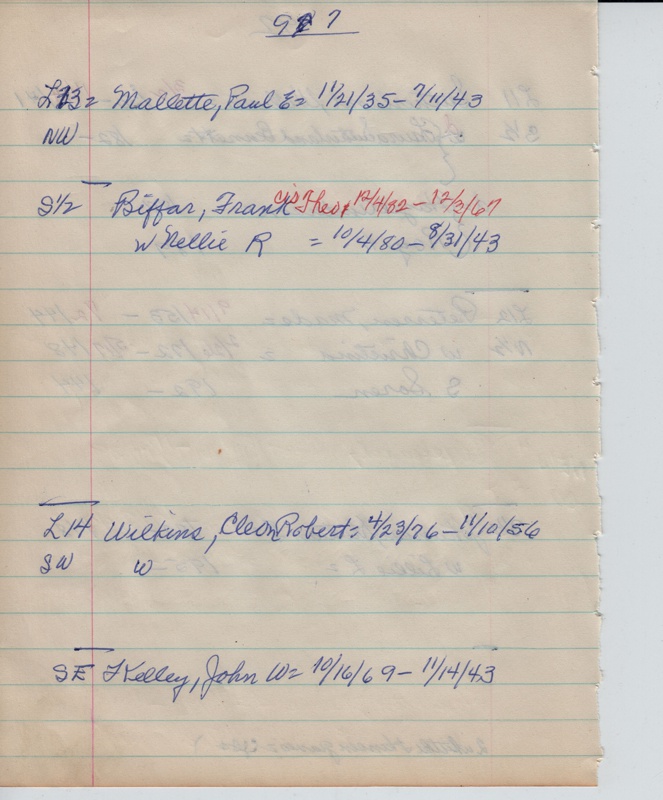 927
L13 = Mallette, Paul E = 11/21/35 - 7/11/43
NW
S1/2 Biffar, Frank Theo 12/4/82 - 12/2/67
w Nellie R = 10/4/80 - 8/31/43
L14 Wilkins, Cleon Robert = 4/23/76 - 11/10/56
SW w
SE Kelley, John W = 10/16/69 - 11/14/43